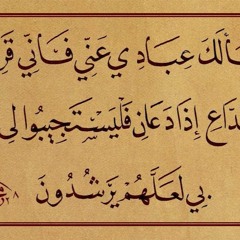 ألَكَ عِبَادِي عَنِّي فَإنِّي قَرِ
دَاعِ إِذَا دَعَانِ فَلْيَسْتَجِيبُوا لِي
بِي لَعَلَّهُمْ يَرْشُدُونَ